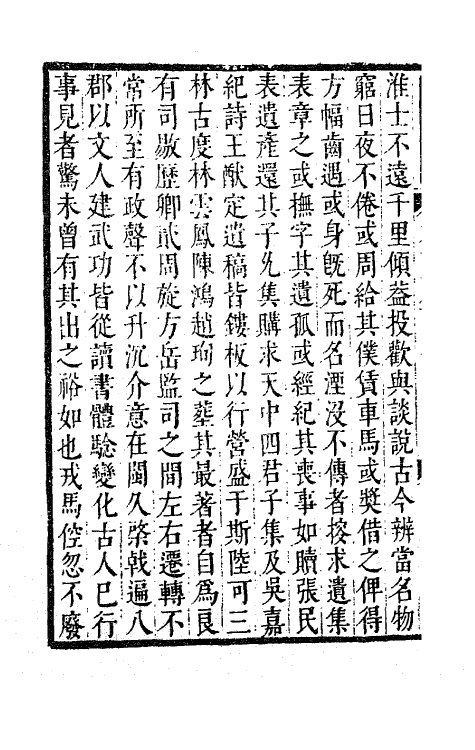 淮士不遠千里傾葢投歡與談說古今辨當名物
窮日夜不倦或周給其僕賃車馬或奬借之俾得
方幅齒遇或身旣死而名湮沒不傳者搜求遺集
表章之或撫字其遺孤或經紀其喪事如贖張民
表遺產還其子允集購求天中四君子集及吳嘉
紀詩王猷定遺稿皆鏤板以行營盛于斯陸可三
林古度林雲鳳陳鴻趙珣之塟其最著者自爲良
有司敭歷卿貳周旋方岳監司之間左右遷轉不
常所至有政聲不以升沉介意在閩久棨戟遍八
郡以文人建武功皆從讀書體驗變化古人巳行
事見者驚未曾有其出之裕如也戎馬倥忽不廢